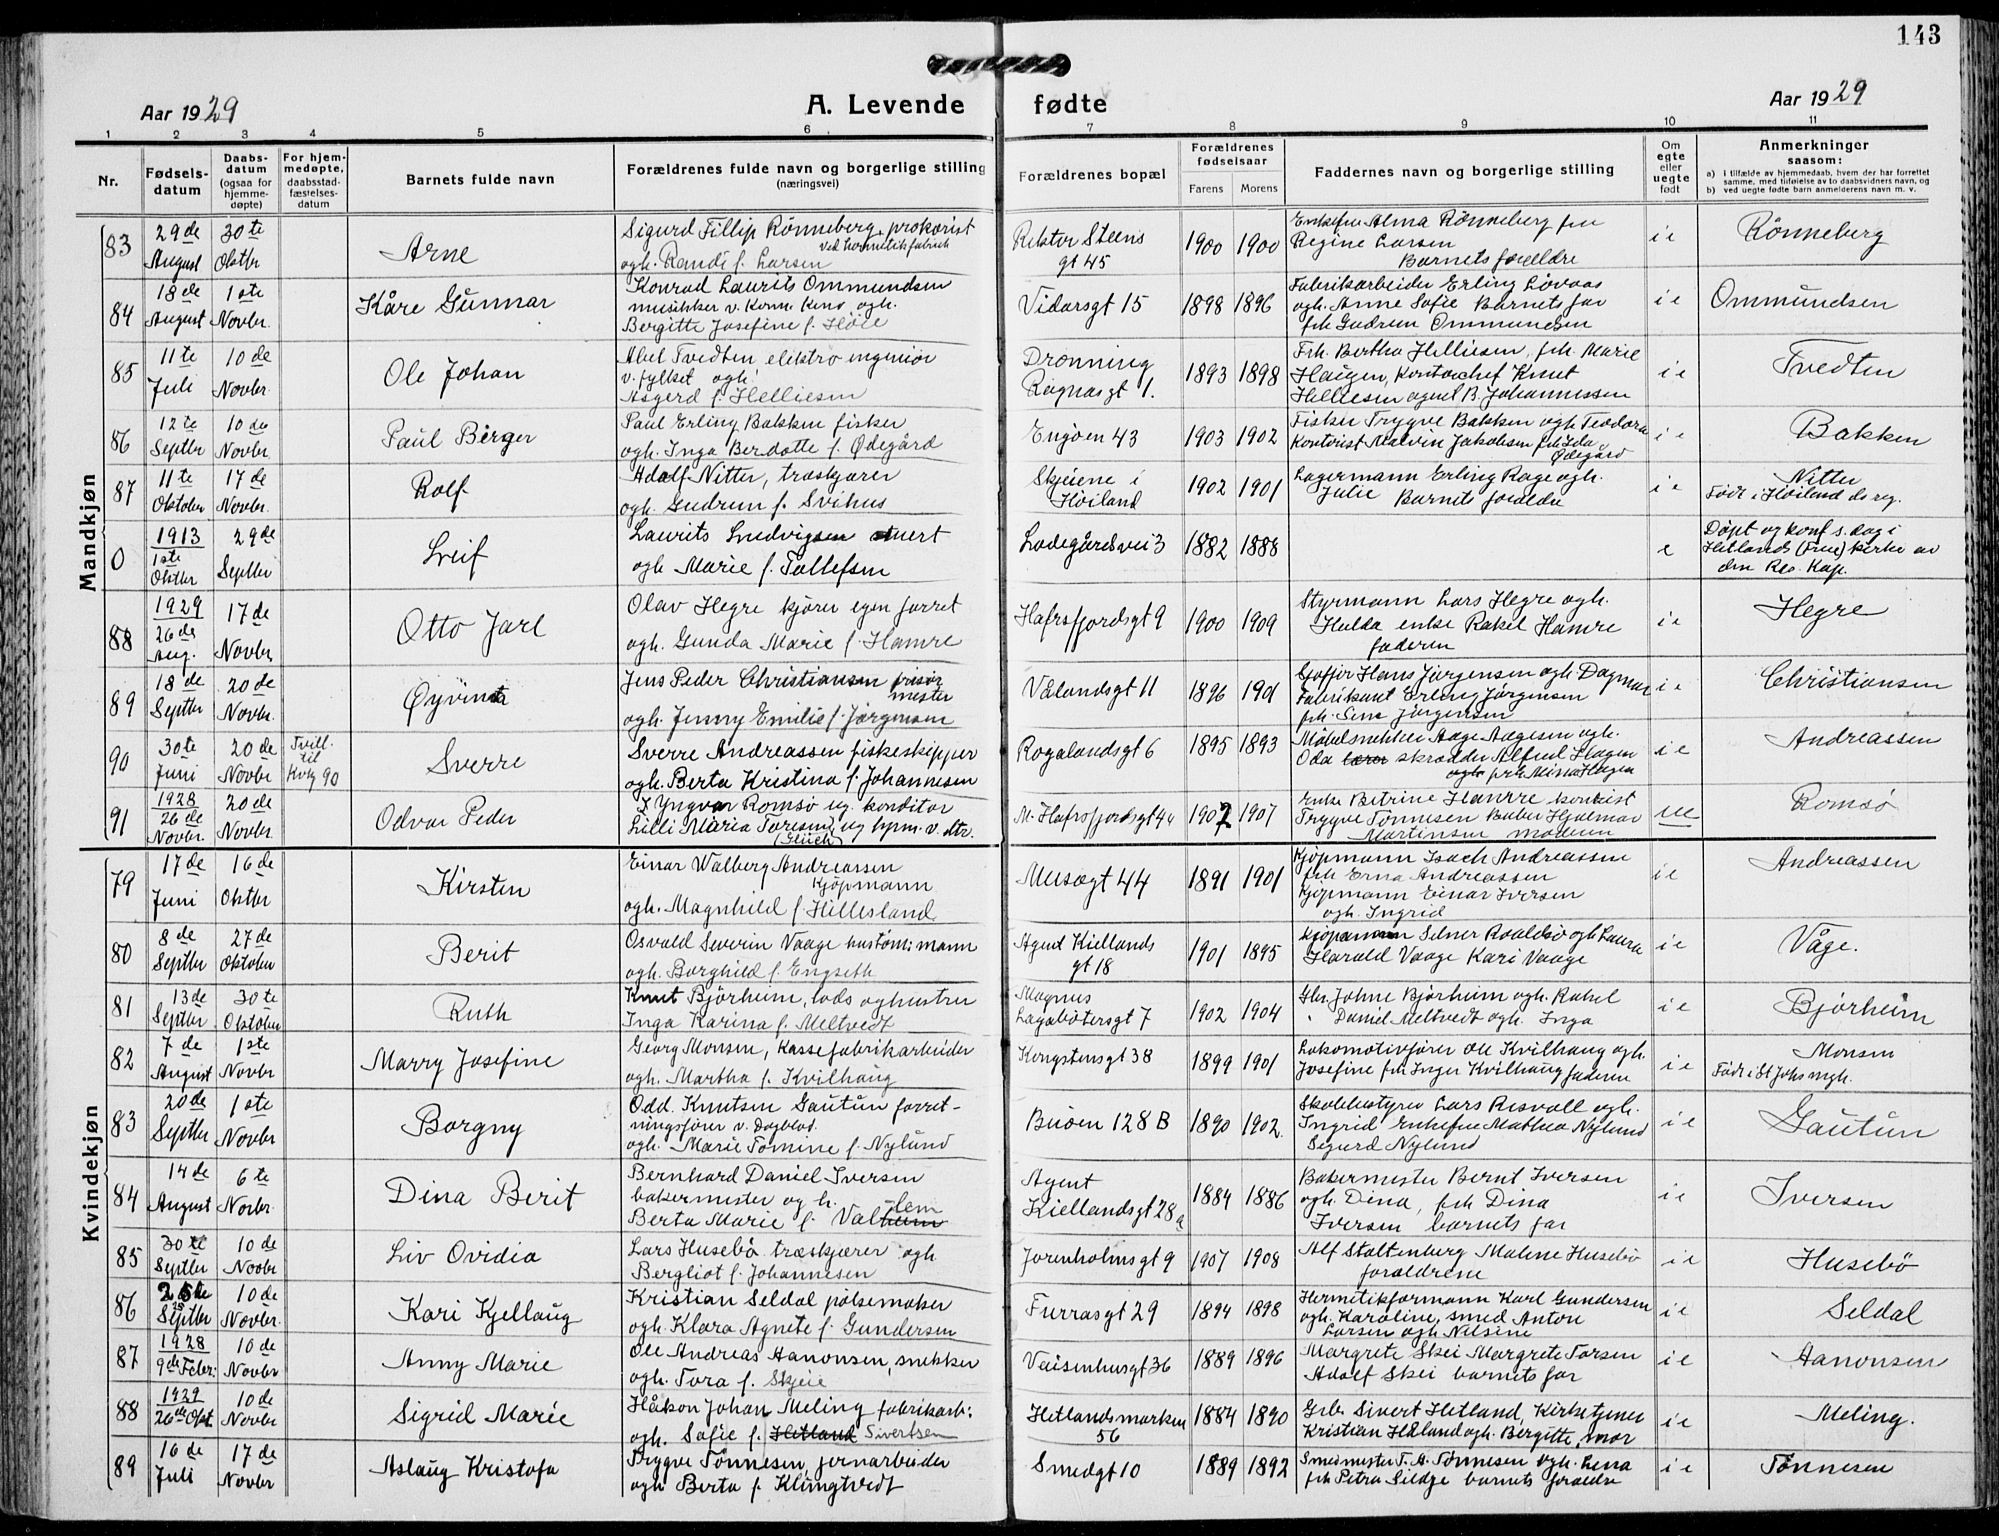 143
Aar 1929
A. Levende fødte
Aar 1929
1 2 3 4 5 6 7 8 9 10 11
Nr.
Fødsels-datum
Daabs-datum (ogsaa for hjemme-døpte)
For hjem-medøpte, daabsstad-fæstelses-datum
Barnets fulde navn
Forældrenes fulde navn og borgerlige stilling (næringsvei)
Forældrenes bopæl
Forældrenes fødselsaar
Farens Morens
Faddernes navn og borgerlige stilling
Om egte eller uegte født
Anmerkninger saasom:
a) i tilfælde av hjemmedaab, hvem der har forrettet samme, med tilføielse av to daabsvidners navn, og
b) ved uegte fødte barn anmelderens navn m. v.
Mandkjøn
83 29de August 30te Oktbr Arne
Sigurd Fillip Rønneberg, prokurist
ved hermetikfabrik
ogh. Randi f. Larsen
Rektor Steens
gt 45
1900 1900
Enkefru Alma Rønneberg fru
Regine Larsen
Barnets forældre
i e Rønneberg
84 18de August 1ste Novbr. Kåre Gunnar
Konrad Laurits Ommundsen
musikker v. Kom. Kino ogh.
Bergitte Josefine f. Høie
Vidarsgt 15 1898 1896
Fabrikarbeider Erling Løvaas
ogh. Anne Sofie Barnets far
frk Gudrun Ommundsen
i e Ommundsen
85 11te Juli 10de Novbr. Ole Johan
Abel Tvedten elektroingeniør
v. fylket ogh.
Asgerd f. Helliesen
Dronning
Ragnasgt 1.
1893 1898
Frk. Bertha Helliesen, frk. Marie
Haugen, Kontorchef Knut
Helliesen agent B. Johannessen
i e Tvedten
86 12te Septbr 10de Novbr. Paul Birger
Paul Erling Bakken fisker
ogh. Inga Berdatte f. Ødegård
Engøen 43 1903 1902
Fisker Trygve Bakken ogh Teodora
Kontorist Malvin Jakobsen frk Ida
Ødegård
i e Bakken
87 11te Oktober 17de Novbr. Rolf
Adolf Nitter, træskjærer
ogh. Gudrun f. Svihus
Skjeiene i
Høiland
1902 1901
Lagermann Erling Rage ogh.
Julie Barnets foreldre
i e Nitter
Født i Høiland ds reg.
0 1913 1ste Oktbr 29de Septbr Leif
Laurits Ludvigsen murt
ogh Marie f. Tollefsen
Ladegårdsvei 3 1882 1888
e
Døpt og konf s. dag i
Hetlands (Frue) kirke av
den Res. Kap.
88 1929 26de Aug. 17de Novbr Otto Jarl
Olav Hegre kjører egen forret
ogh. Gunda Marie f. Hamre
Hafrsfjordsgt 9 1900 1909
Styrmann Lars Hegre ogh.
Hulda enke Rakel Hamre
faderen
i e Hegre
89 18de Septbr 20de Novbr. Øyvind
Jens Peder Christiansen frisør
mester
ogh. Jenny Emilie f. Jørgensen
Vålandsgt 11 1896 1901
Gofjør Hans Jørgensen ogh Dagmar
Fabrikant Erling Jørgensen
frk. Sina Jørgensen
i e Christiansen
90 30te Juni 20de Novbr Tvill. til Kvk 90 Sverre
Sverre Andreassen fiskeskipper
ogh. Berta Kristina f. Johannesen
Rogalandsgt 6 1895 1893
Møbelsnekker Aage Aagesen ogh.
Oda skrædder Alfred Hagen
ogh frk Mina Hagen
i e Andreassen
91 1928 26de Novbr. 20de Novbr. Odvar Peder
Yngvar Romsø ug. konditor
Lilli Maria Toresen, ug hjm. v. str.
M. Hafrsfjordsgt 44 1907 1907
Enke Betrine Hamre kontrist
Trygve Tønnesen Baker Hjalmar
Martinsen moderen
ue Romsø
Kvindekjøn
79 17de Juni 16de Oktbr Kirsten
Einar Walberg Andreassen
kjøpmann
ogh. Magnhild f. Hillesland
Musægt 44 1891 1901
Kjøpmann Isach Andreassen
frk Erna Andreassen
Kjøpmann Einar Iversen
ogh. Ingrid
i e Andreassen
80 8de Septbr 27de Oktober Berit
Osvald Severin Vaage hustom: mann
ogh. Borghild f. Engseth
Agent Kiellands
gt 18
1901 1895
Kjøpmann Selner Roaldsø ogh Laura
Harald Vaage Kari Vaage
i e Våge.
81 13de Septbr. 30te Oktober Ruth
Knut Bjørheim, lods oghustru
Inga Karina f. Meltvedt
Magnus
Lagabøtersgt 7
1902 1904
Gbr. Johne Bjørheim ogh. Rakel
" Daniel Meltvedt ogh. Inga
i e Bjørheim
82 7de August 1ste Novbr. Marry Josefine
Georg Monsen, kassefabrikarbeider
ogh. Martha f. Kvilhaug
Kongstensgt 38 1899 1901
Lokomotivfører Ole Kvilhaug ogh.
Josefine frk Inger Kvilhaug faderen
i e Monsen
Født i St Johs mgh.
83 20de Septbr 1ste Novbr Borgny
Odd. Knutsen Gautun forret-
ningsfører v. Dagblad.
ogh. Marie Tomine f. Nylund
Buøen 128 B 1890 1902.
Skolebestyrer Lars Risvoll ogh.
Ingrid Enkefru Mathea Nylund
Sigurd Nylund
i e Gautun
84 14de August 6te Novbr. Dina Berit
Bernhard Daniel Iversen
bakermester og h.
Berta Marie f. Valheim lem
Agent
Kiellandsgt 28a
1884 1886
Bakermester Bernt Iversen
ogh. Dina, frk Dina
Iversen barnets far
i e Iversen
85 30te Septbr 10de Novbr Liv Ovidia
Lars Husebø træskjærer ogh
Bergliot f. Johannesen
Jorenholmsgt 9 1907 1908
Alf Stoltenberg Malene Husebø
foreldrene
i e Husebø
86 25de Septbr 10de Novbr. Kari Kjellaug
Kristian Seldal pølsemaker
ogh. Klara Agnete f. Gundersen
Furrasgt 29 1894 1898
Hermetikformann Karl Gundersen
ogh. Karoline, smed Anton
Larsen ogh Nilsine
i e Seldal
87 1928 9de Febr: 10de Novbr Anny Marie
Ole Andreas Aanonsen, snekker
ogh. Tora f. Skjeie
Vaisenhusgt 36 1889 1896
Margrete Skei Margrete Torsen
Adolf Skei barnets far
i e Aanonsen
88 1929 26de Okt. 10de Novbr Sigrid Marie
Håkon Johan Meling fabrikarb:
ogh. Sofie f. Hetland Sivertsen
Hetlandsmarken
56
1884 1890
Grb. Sivert Hetland, Kirketjener
Kristian Håland ogh. Bergitte, mor
i e Meling.
89 16de Juli 17de Novbr Aslaug Kristofa
Trygve Tønnesen, jernarbeider
ogh Berta f. Klingtvedt
Smedgt 10 1889 1892
Smedmester T. A. Tønnesen ogh. Lena
frk Petra Sildge barnets foreldre
i e Tønnesen